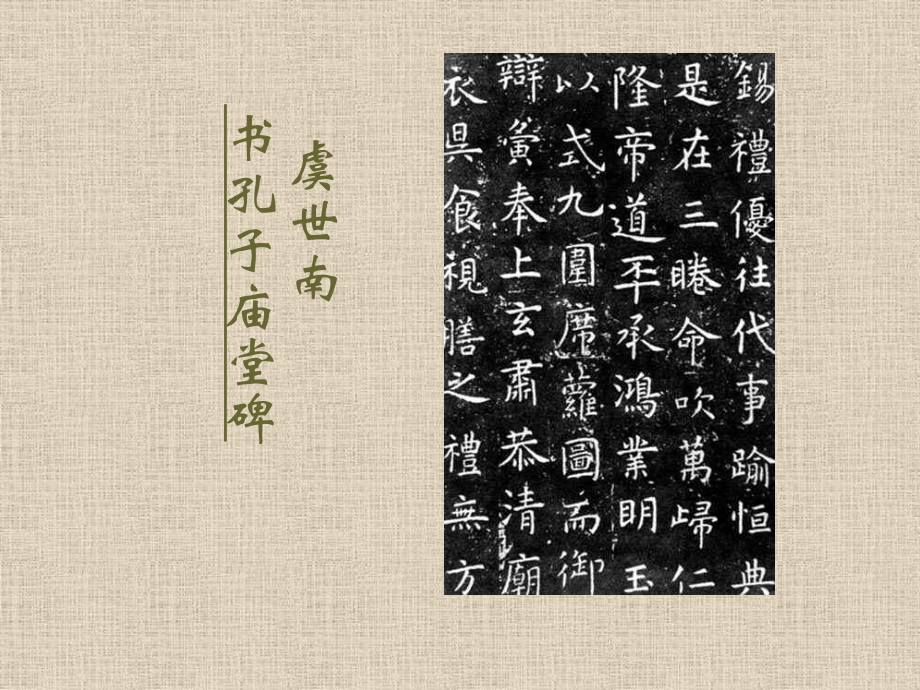 虞世南
书孔子庙堂碑
錫禮優往代事踰恒典
是在三睠命吹萬歸仁
隆帝道丕承鴻業明玉
以式九圍席蘿圖而御
辯黉奉上玄肅恭清廟
衣具食視膳之禮無方